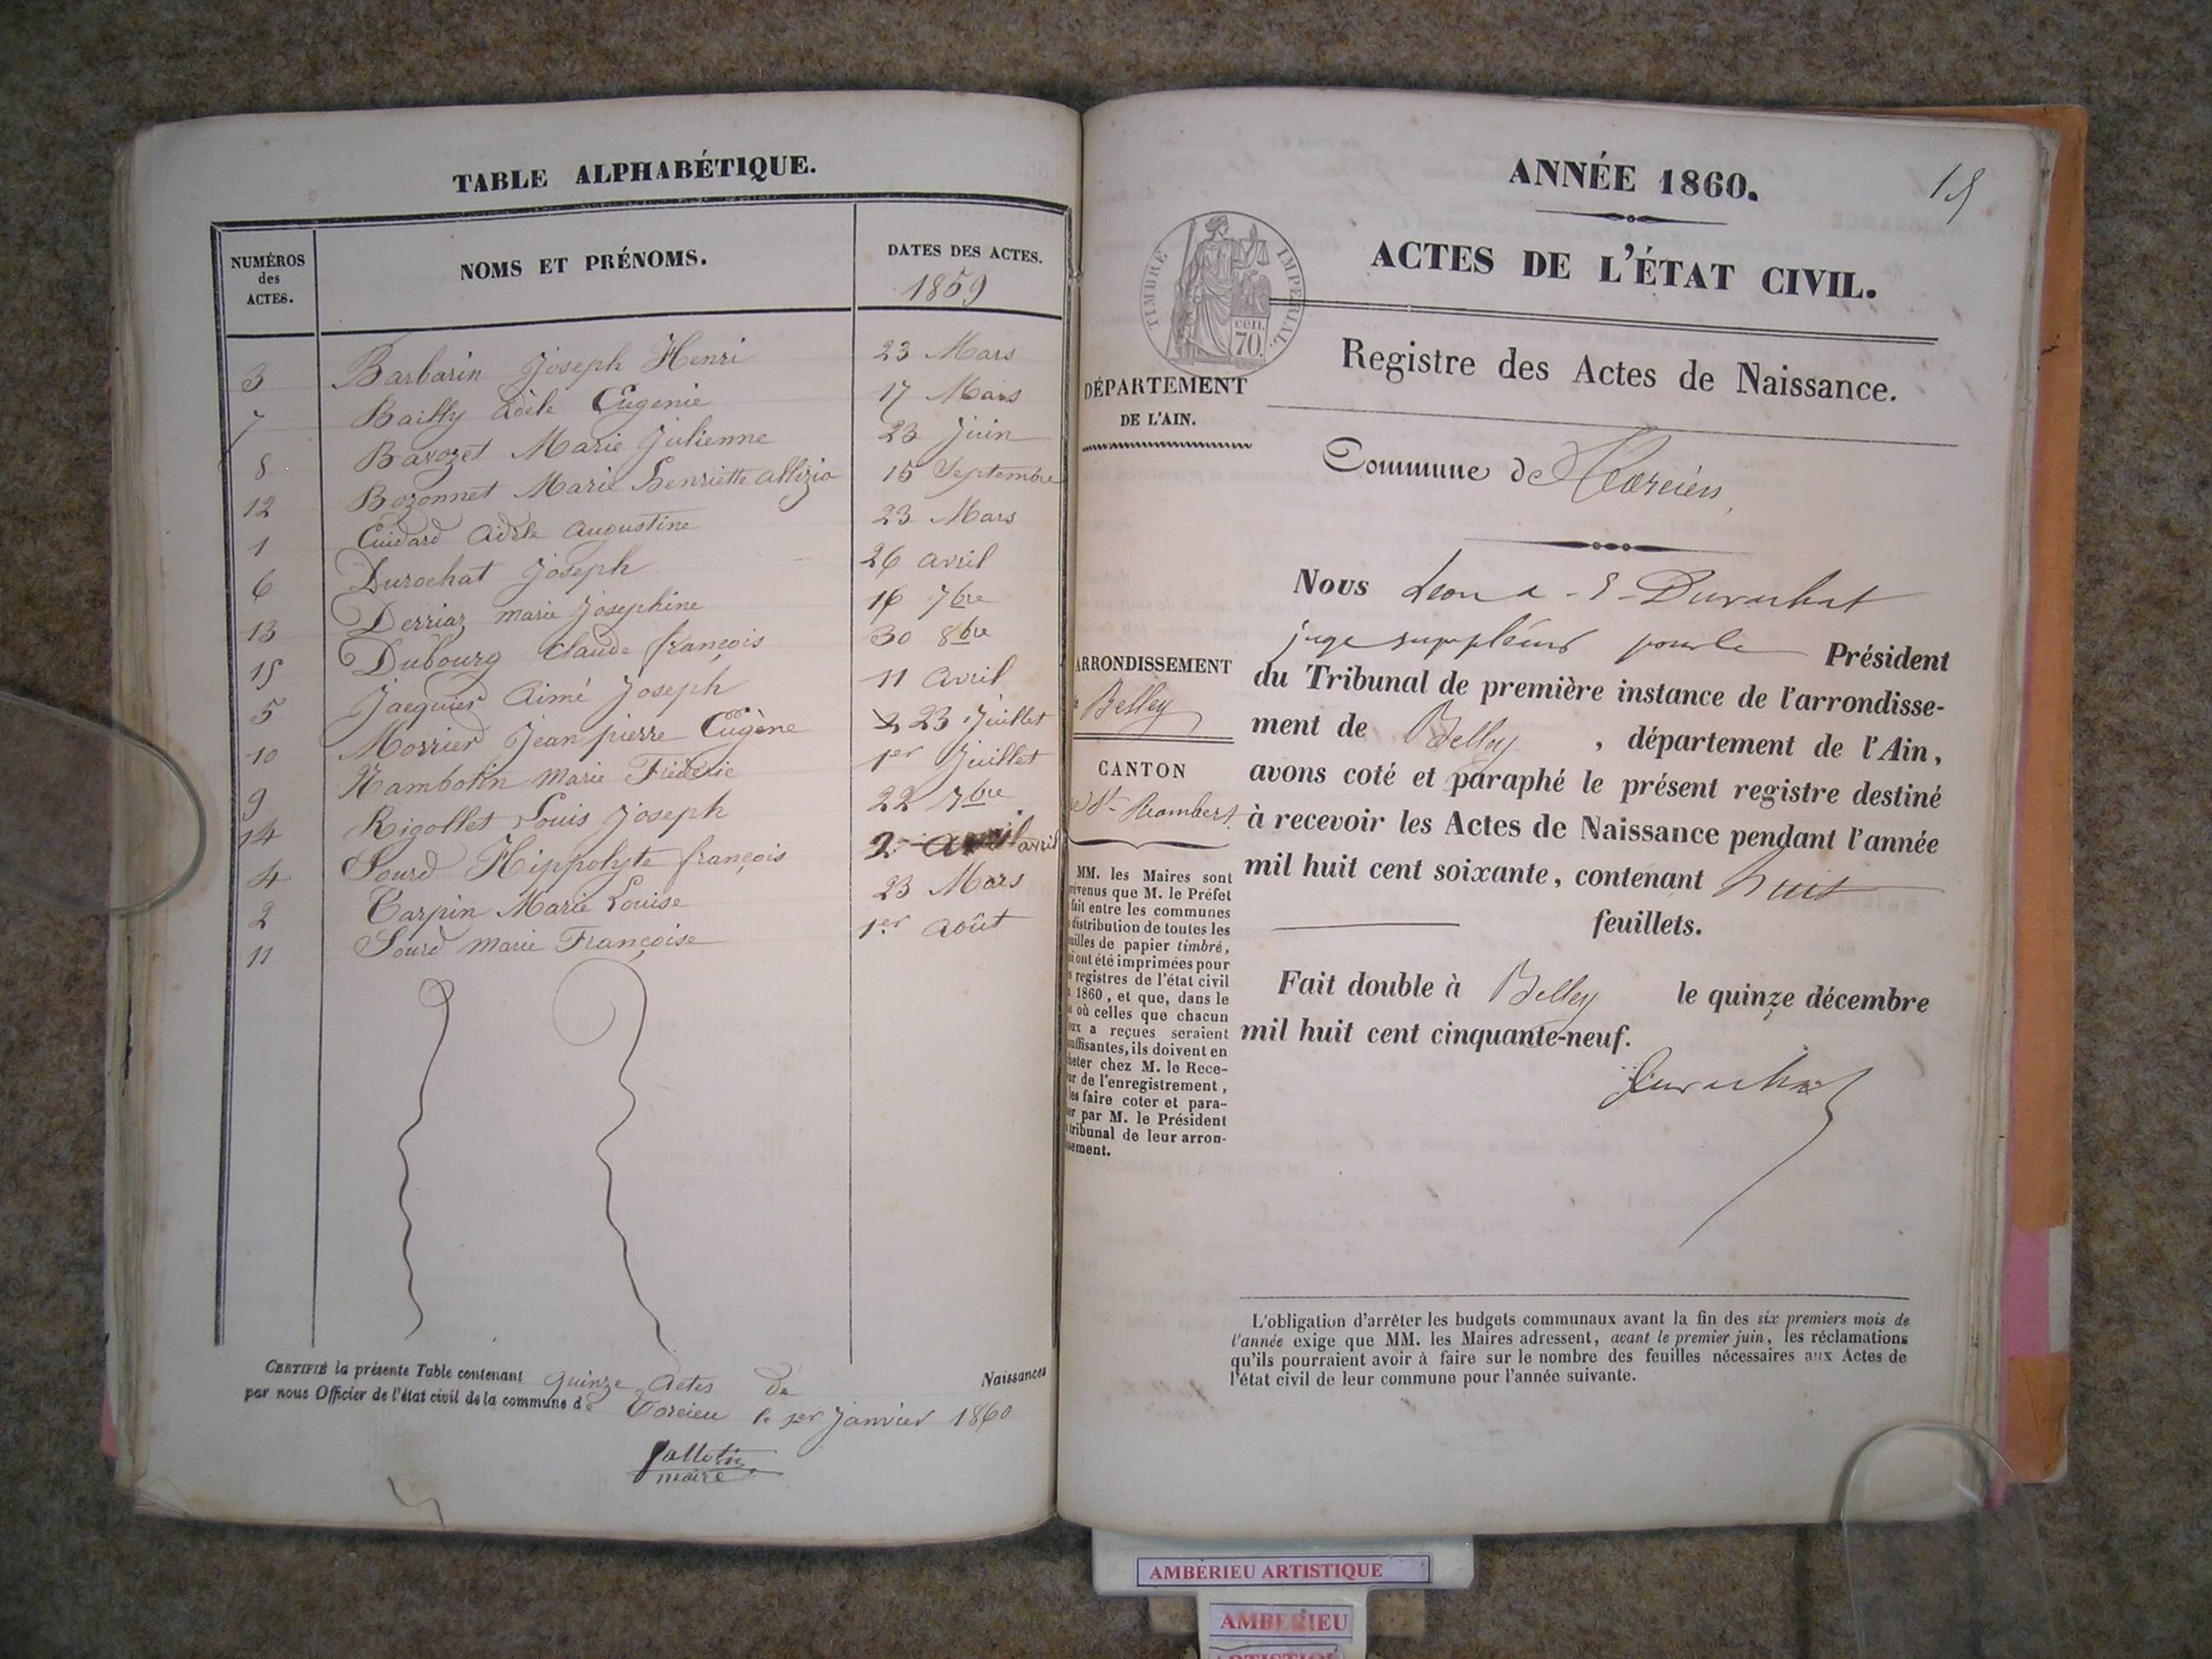 TABLE ALPHABÉTIQUE.
NUMÉROS des ACTES.
NOMS ET PRÉNOMS.
DATES DES ACTES.
1859
3 Barbarin Joseph Henri 23 Mars
7 Bailly Adèle Eugénie 17 Mars
8 Barozet Marie Julienne 23 Juin
12 Bozonnet Marie Henriette 15 Septembre
1 Cuidard Adèle Augustine 23 Mars
6 Durochat Joseph 26 avril
13 Derriaz marie Josephine 16 7bre
15 Dubourg Claude françois 30 8bre
5 Jacquier Aimé Joseph 11 avril
10 Morrier Jean pierre Eugène 23 Juillet
9 Nambotin Marie Frédéric 1er Juillet
14 Rigollet Louis Joseph 22 7bre
4 Sourd Hippolyte françois 2 avril
2 Carpin Marie Louise 23 Mars
11 Sourd marie Françoise 1er Août
CERTIFIÉ la présente Table contenant quinze Actes de Naissances
par nous Officier de l'état civil de la commune de Torcieu le 1er Janvier 1860
maire
ANNÉE 1860.
15
ACTES DE L'ÉTAT CIVIL.
TIMBRE IMPÉRIAL.
cen.
70.
Registre des Actes de Naissance.
DÉPARTEMENT
DE L'AIN.
Commune de
ARRONDISSEMENT
Belley
CANTON
St Rambert
MM. les Maires sont
révenus que M. le Préfet
fait entre les communes
distribution de toutes les
uilles de papier timbré,
ui ont été imprimées pour
s registres de l'état civil
1860, et que, dans le
s où celles que chacun
eux a reçues seraient
uffisantes, ils doivent en
heter chez M. le Rece-
ur de l'enregistrement,
les faire coter et para-
er par M. le Président
tribunal de leur arron-
ssement.
Nous Durochat
juge suppléant pour le Président
du Tribunal de première instance de l'arrondisse-
ment de Belley , département de l'Ain,
avons coté et paraphé le présent registre destiné
à recevoir les Actes de Naissance pendant l'année
mil huit cent soixante, contenant huit
feuillets.
Fait double à Belley le quinze décembre
mil huit cent cinquante-neuf.
Durochat
L'obligation d'arrêter les budgets communaux avant la fin des six premiers mois de
l'année exige que MM. les Maires adressent, avant le premier juin, les réclamations
qu'ils pourraient avoir à faire sur le nombre des feuilles nécessaires aux Actes de
l'état civil de leur commune pour l'année suivante.
AMBERIEU ARTISTIQUE
AMBERIEU
ARTISTIQUE